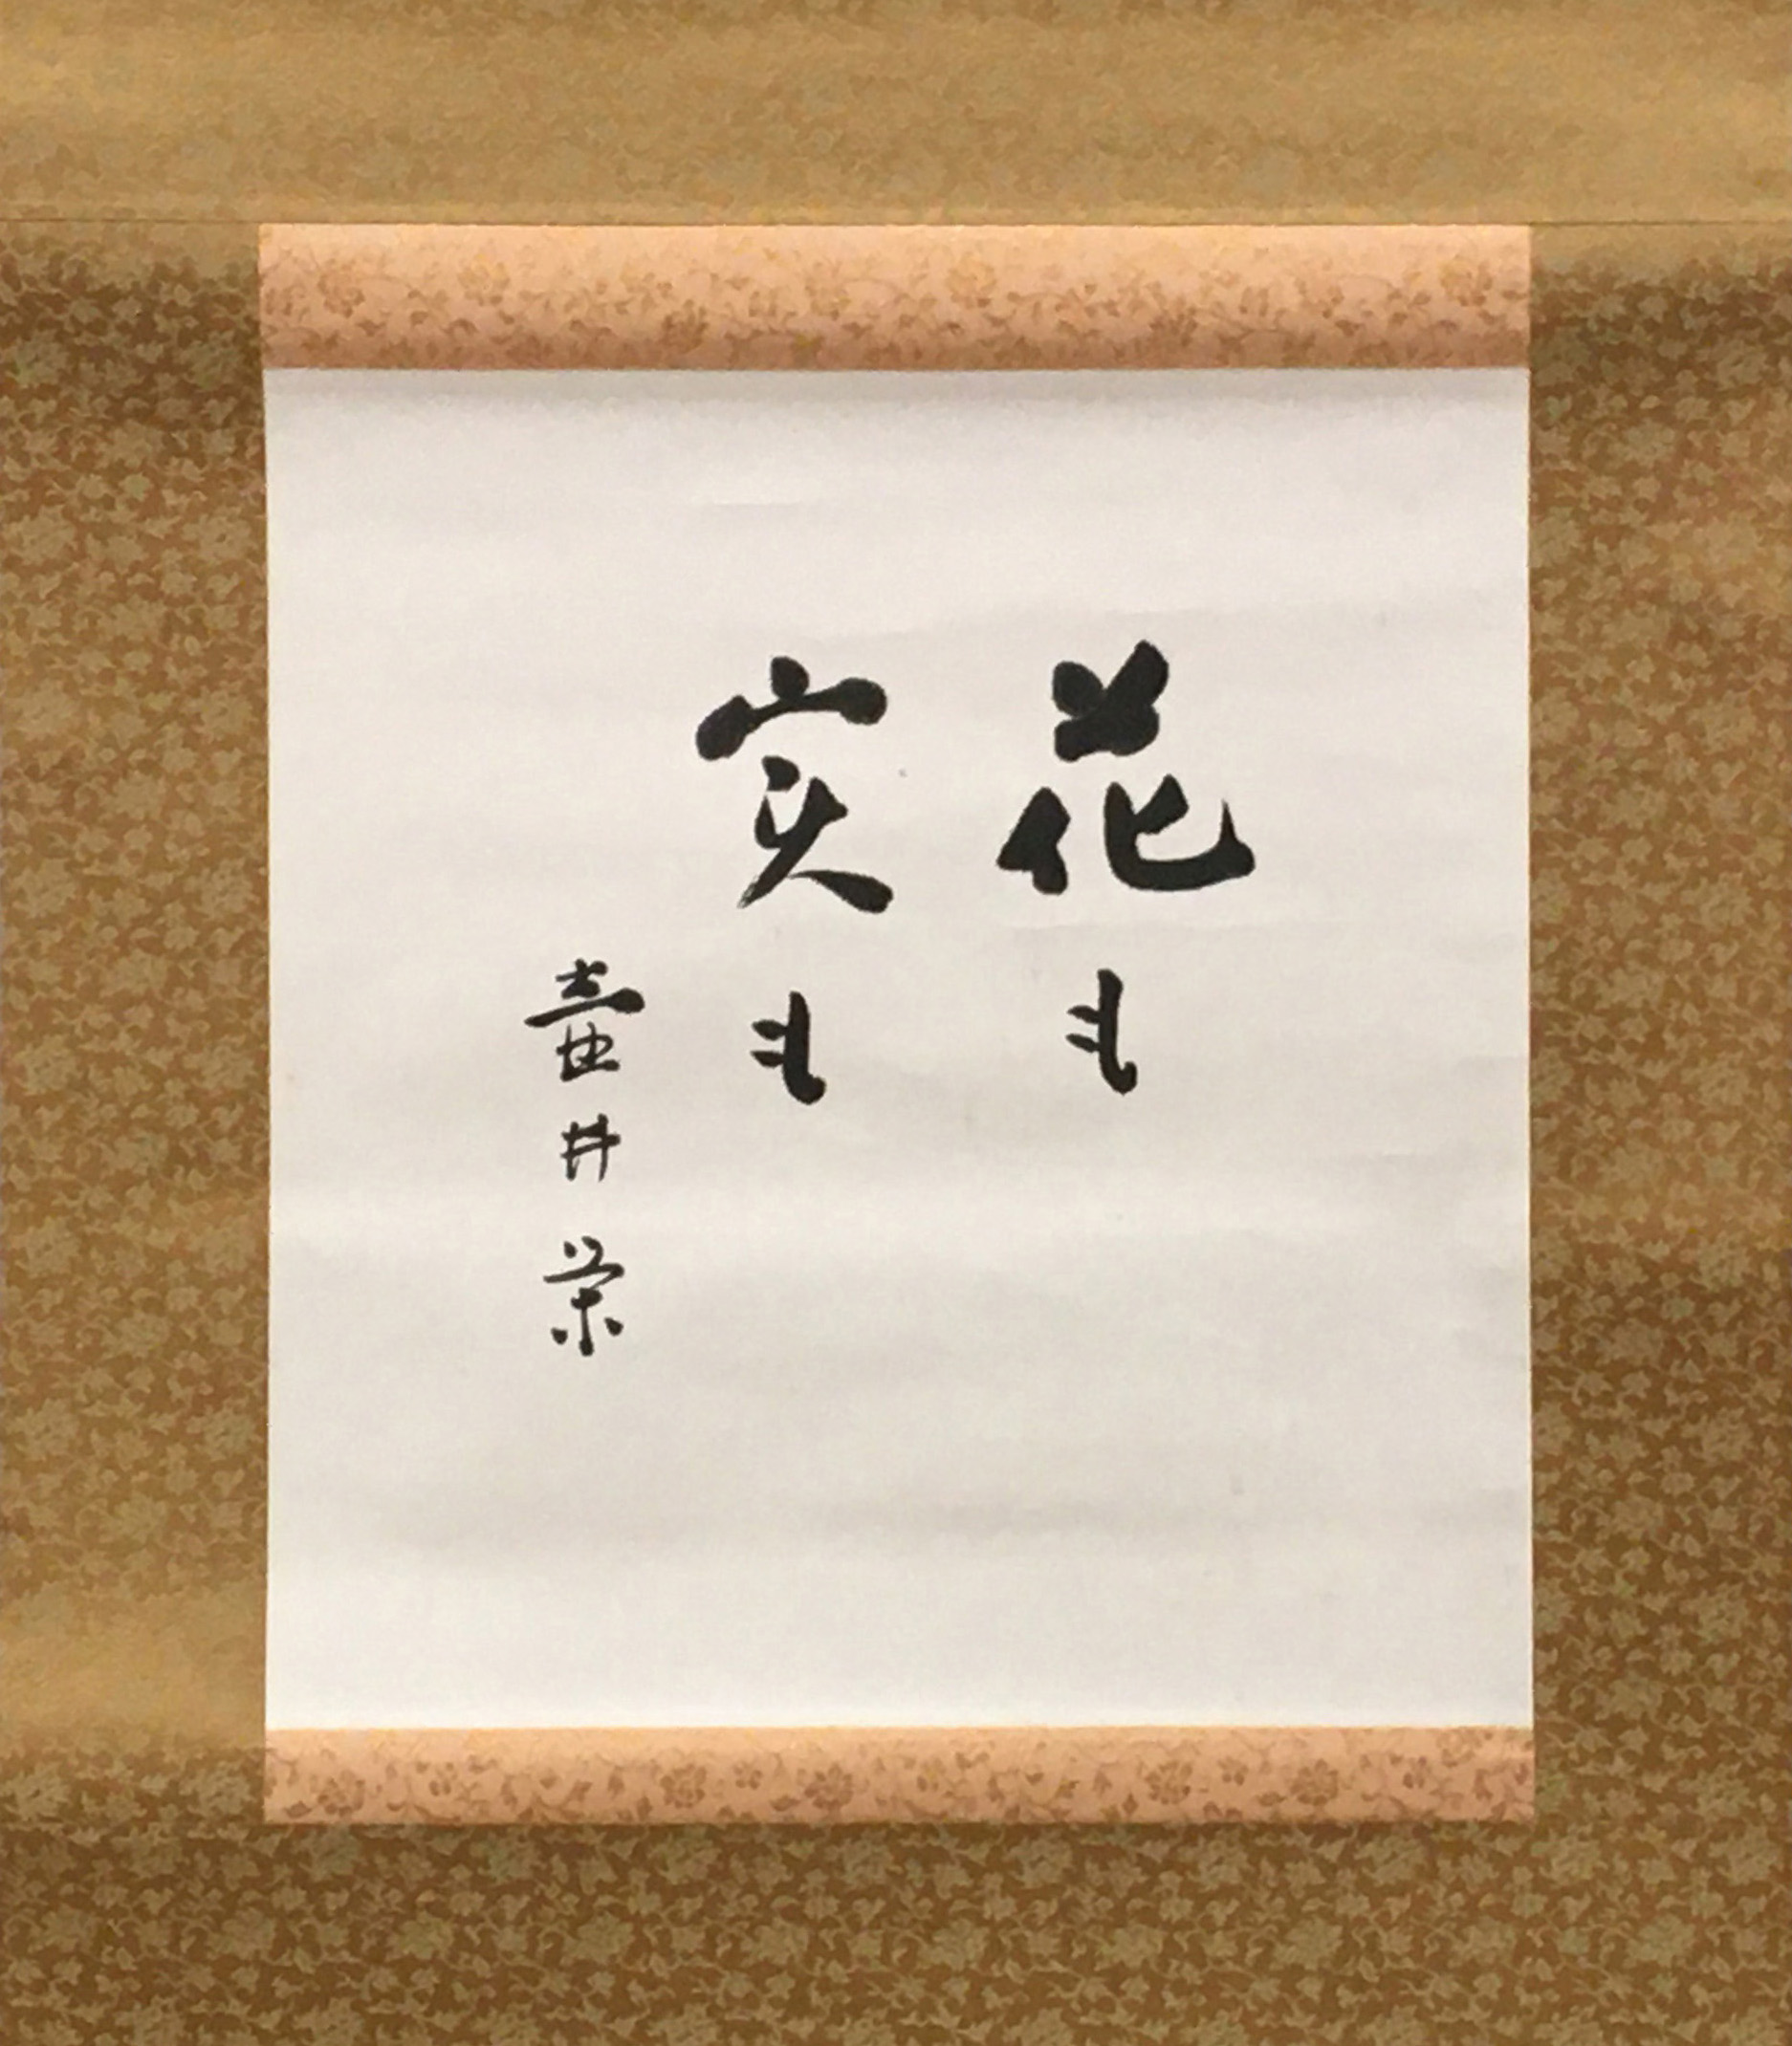 花も
実も
壷井栄